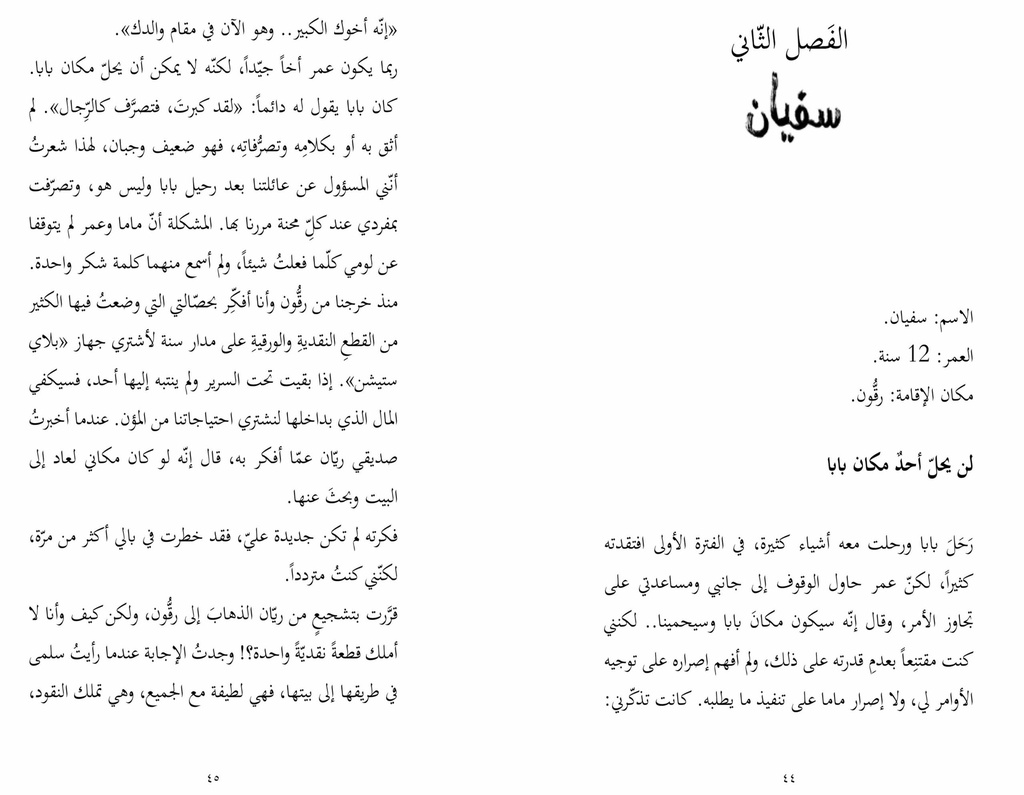 الفَصل الثّاني
سفيان
الاسم: سفيان.
العمر: 12 سنة.
مكان الإقامة: رقُّون.
لن يحلّ أحدٌ مكان بابا
رَحَلَ بابا ورحلت معه أشياء كثيرة، في الفترة الأولى افتقدته
كثيراً، لكنّ عمر حاول الوقوف إلى جانبي ومساعدتي على
تجاوز الأمر، وقال إنّه سيكون مكانَ بابا وسيحمينا.. لكنني
كنت مقتنِعاً بعدمِ قدرته على ذلك، ولم أفهم إصراره على توجيه
الأوامر لي، ولا إصرار ماما على تنفيذ ما يطلبه. كانت تذكّرني:
٤٤
«إنّه أخوك الكبير.. وهو الآن في مقام والدك».
ربما يكون عمر أخاً جيّداً، لكنّه لا يمكن أن يحلّ مكان بابا.
كان بابا يقول له دائماً: «لقد كبرتَ، فتصرَّف كالرِّجال». لم
أثق به أو بكلامِه وتصرُّفاتِه، فهو ضعيف وجبان، لهذا شعرتُ
أنّني المسؤول عن عائلتنا بعد رحيل بابا وليس هو، وتصرّفت
بمفردي عند كلِّ محنة مررنا بها. المشكلة أنّ ماما وعمر لم يتوقفا
عن لومي كلّما فعلتُ شيئاً، ولم أسمع منهما كلمة شكر واحدة.
منذ خرجنا من رقُّون وأنا أفكِّر بحصّالتي التي وضعتُ فيها الكثير
من القطعِ النقديةِ والورقيةِ على مدار سنة لأشتري جهاز «بلاي
ستيشن». إذا بقيت تحت السرير ولم ينتبه إليها أحد، فسيكفي
المال الذي بداخلها لنشتري احتياجاتنا من المؤن. عندما أخبرتُ
صديقي ريّان عمّا أفكر به، قال إنّه لو كان مكاني لعاد إلى
البيت وبحثَ عنها.
فكرته لم تكن جديدة عليّ، فقد خطرت في بالي أكثر من مرّة،
لكنّني كنتُ متردداً.
قرَّرت بتشجيعٍ من ريّان الذهابَ إلى رقُّون، ولكن كيف وأنا لا
أملك قطعةً نقديّةً واحدة؟! وجدتُ الإجابة عندما رأيتُ سلمى
في طريقها إلى بيتها، فهي لطيفة مع الجميع، وهي تملك النقود،
٤٥